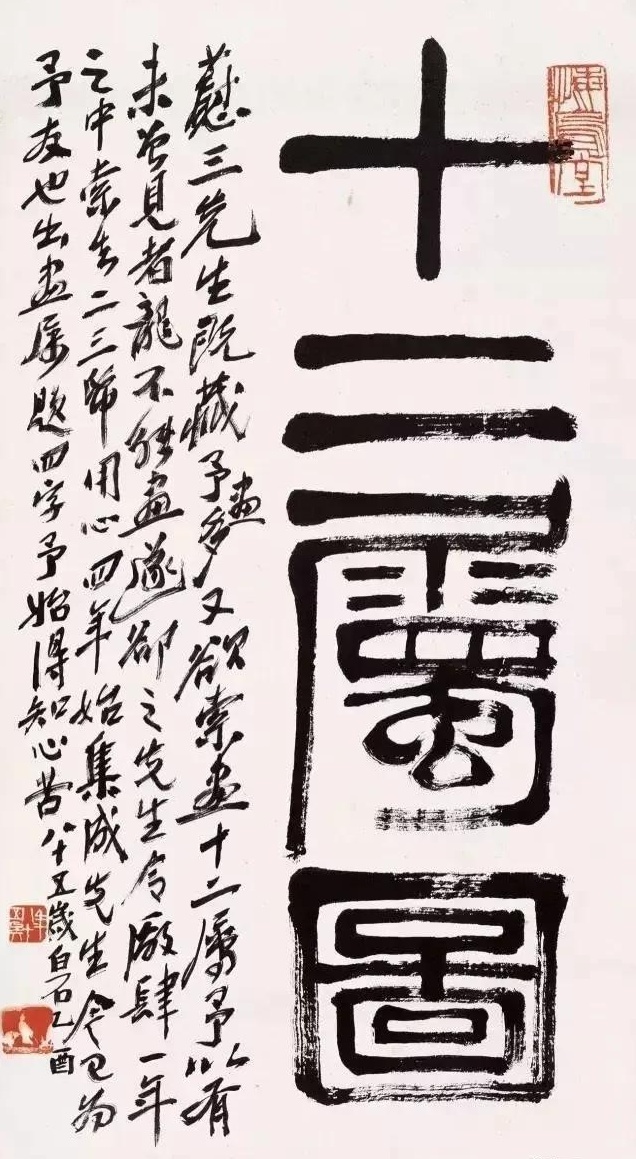 十二屬圖
悔烏堂
蕙三先生既藏予畫多又欲索畫十二屬予以有
未曾見者龍不能畫遂卻之先生令廠肆一年
之中索去二三幀用心四年始集成先生今已為
予友也出畫屬題四字予始得知心苦八十五歲白石乙酉